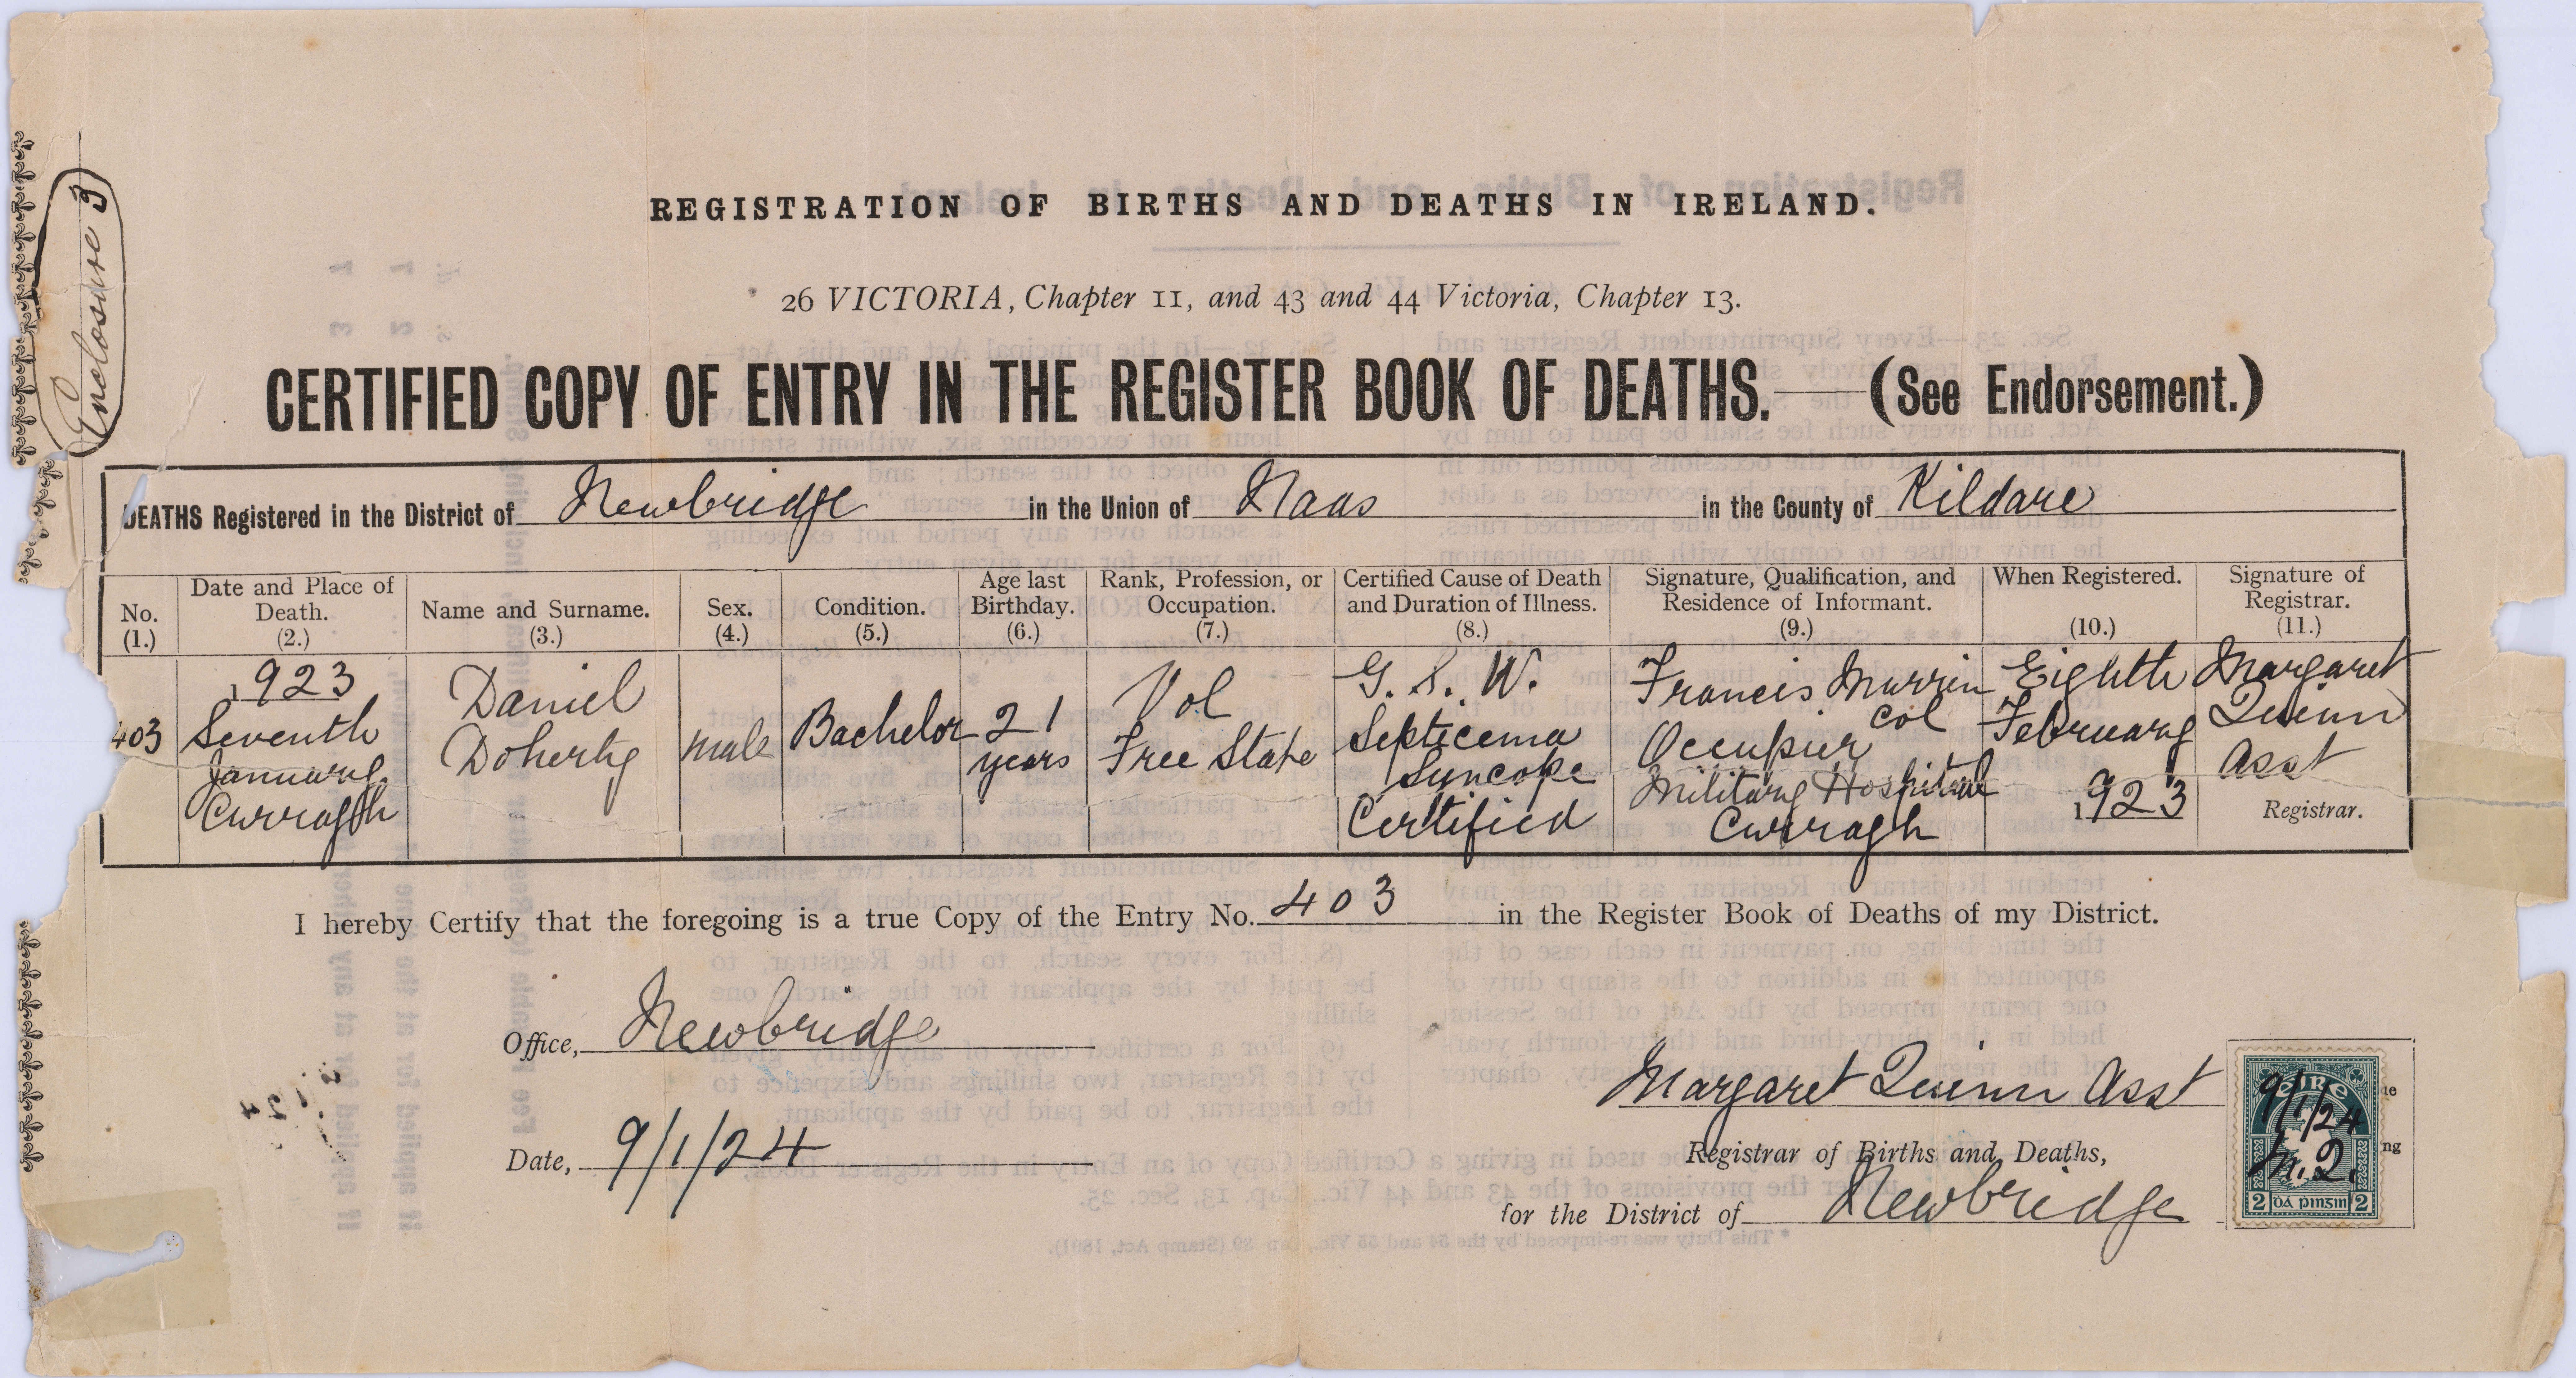 Enclosure 3
REGISTRATION OF BIRTHS AND DEATHS IN IRELAND.
26 VICTORIA, Chapter 11, and 43 and 44 Victoria, Chapter 13.
CERTIFIED COPY OF ENTRY IN THE REGISTER BOOK OF DEATHS.—(See Endorsement.)
DEATHS Registered in the District of Newbridge in the Union of Naas in the County of Kildare
No.
(1.)
Date and Place of
Death.
(2.)
Name and Surname.
(3.)
Sex.
(4.)
Condition.
(5.)
Age last
Birthday.
(6.)
Rank, Profession, or
Occupation.
(7.)
Certified Cause of Death
and Duration of Illness.
(8.)
Signature, Qualification, and
Residence of Informant.
(9.)
When Registered.
(10.)
Signature of
Registrar.
(11.)
403
1923
Seventh
January
Curragh
Daniel
Doherty
male
Bachelor
21
years
Vol
Free State
G. S. W.
Septicema
Syncope
Certified
Francis Murrin
Col
Occupier
Military Hospital
Curragh
Eighth
February
1923
Margaret
Quinn
Asst
Registrar.
I hereby Certify that the foregoing is a true Copy of the Entry No. 403 in the Register Book of Deaths of my District.
Office, Newbridge
Date, 9/1/24
Margaret Quinn Asst
Registrar of Births and Deaths,
for the District of Newbridge
éIRe
9/1/24
M.Q.
2 dá pinsin 2